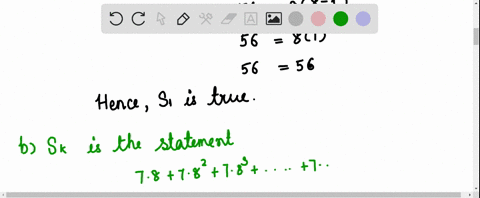 56 = 8(1)
56 = 56
Hence, S₁ is true.
b) Sₖ is the statement
7·8 + 7·8² + 7·8³ + ..... + 7··